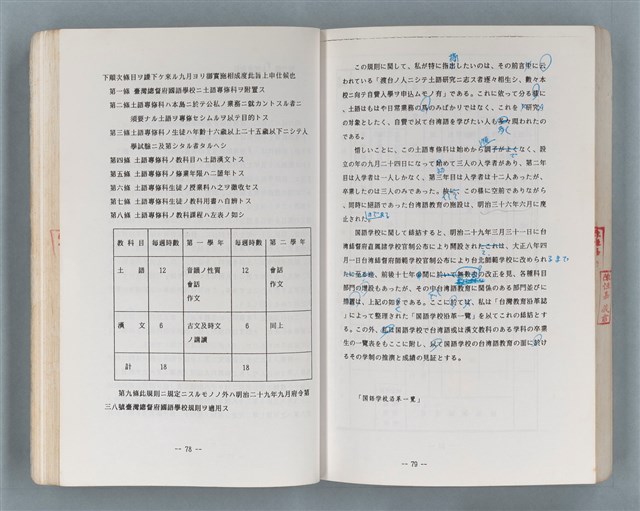 下顯次條目ヲ讓下ケ來ル九月ヨリ御實施相成度此旨上申仕候也
第一條 臺灣總督府國語學校ニ土語專修科ヲ附置ス
第二條土語專修科ハ本島ニ於テ公私ノ業務ニ就カントスル者ニ
須要ナル土語ヲ專修セシムルヲ以テ目的トス
第三條土語專修科ノ生徒ハ年齡十六歲以上二十五歲以下ニシテ人
學試驗ニ及第シタル者タルヘシ
第四條 土語專修科ノ教科目ハ土語漢文トス
第五條 土語專修科ノ修業年限ハ二箇年トス
第六條 土語專修科生徒ノ授業料ハ之ヲ徵收セス
第七條 土語專修科生徒ノ教科用書ハ自辨トス
第八條 土語專修科ノ教科課程ハ左表ノ如シ
教科目 每週時數 第一學年 每週時數 第二學年
土語 12 音韻ノ性質 12 會話
會話 作文
作文
漢文 6 古文及時文 6 同上
ノ講讀
計 18 18
第九條此規則ニ規定ニスルモノノ外ハ明治二十九年九月府令第
三八號臺灣總督府國語學校規則ヲ適用ス
-- 78 --
この規則に関して、私が特に指出したいのは、その前言里に云
われている「渡台ノ人ニシテ土語研究ニ志ス者逐々相生シ、數々本
校ニ向テ自費入學ヲ申込ムモノ有」である。これに依って分る様に
、土語はもはや日常業務の為のみばかりではなく、これを
の対象としたく、自費で以て台湾語を学びたい人も
のである。
惜しいことに、この土語專修科は始めから調子がよくなく、設
立の年の九月二十四日になって始めて三人の入学者があり、第二年
目は入学者は一人しかなく、第三年目は入学者は十二人あったが、
卒業したのは三人のみであった。故に、この様に空前でありながら
、同時に絕語であった台湾語教育の施設は、明治三十六年六月に廃
止された
国語学校に関して総括すると、明治二十九年三月三十一日に台
湾総督府直轄諸学校官制公布により開設されたこれは、大正八年四
月一日台湾総督府師範学校官制公布により台北師範学校に改められ
たに至る迄、前後十七年の間に於いて無数の の改正を見、各種科目
部門の増設もあったが、その中台湾語教育に関係のある部門並びに
措置は、上記の如きである。ここに於ては、私は「台灣教育沿革誌
」によって整理された「国語学校沿革一覽」を以てこれの総括とす
る。この外、私は国語学校で台湾語或は漢文教科のある学科の卒業
生の一覧表をもここに附し、以て国語学校の台湾語教育の面に於け
るその学制の推演と成績の見証とする。
「国語学校沿革一覽」
-- 79 --